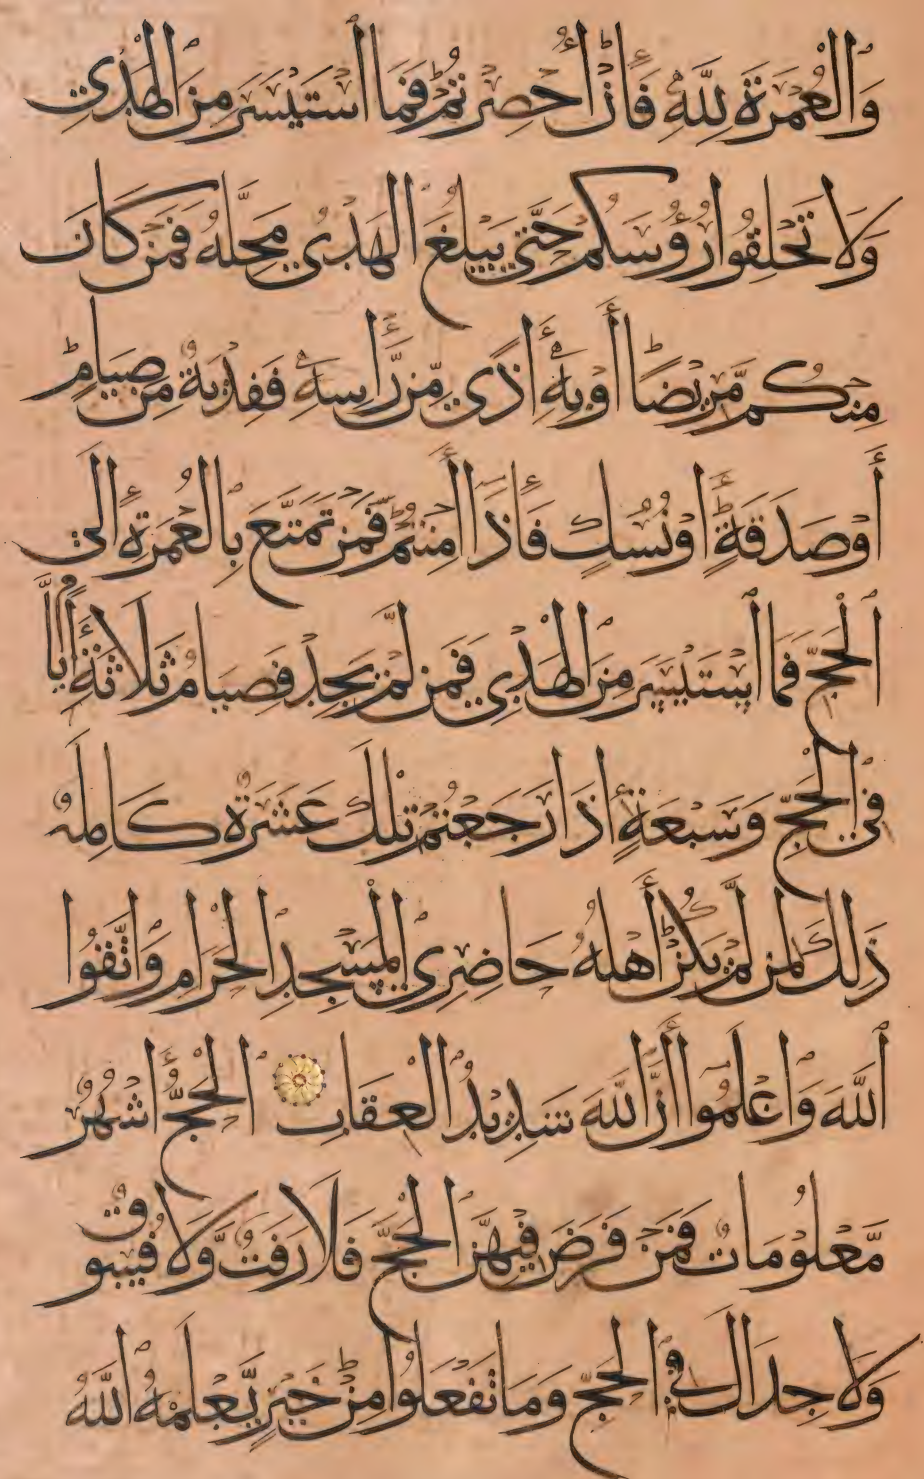 وَالْعُمْرَةَ لِلَّهِ فَإِنْ أُحْصِرْتُمْ فَمَا اسْتَيْسَرَ مِنَ الْهَدْيِ
وَلَا تَحْلِقُوا رُؤُسَكُمْ حَتَّى يَبْلُغَ الْهَدْيُ مَحِلَّهُ فَمَنْ كَانَ
مِنْكُمْ مَّرِيضًا أَوْ بِهِ أَذًى مِّنْ رَّأْسِهِ فَفِدْيَةٌ مِنْ صِيَامٍ
أَوْ صَدَقَةٍ أَوْ نُسُكٍ فَإِذَا أَمِنْتُمْ فَمَنْ تَمَتَّعَ بِالْعُمْرَةِ إِلَى
الْحَجِّ فَمَا اسْتَيْسَرَ مِنَ الْهَدْيِ فَمَنْ لَّمْ يَجِدْ فَصِيَامُ ثَلَاثَةِ أَيَّامٍ
فِي الْحَجِّ وَسَبْعَةٍ إِذَا رَجَعْتُمْ تِلْكَ عَشَرَةٌ كَامِلَةٌ
ذَلِكَ لِمَنْ لَّمْ يَكُنْ أَهْلُهُ حَاضِرِي الْمَسْجِدِ الْحَرَامِ وَاتَّقُوا
اللَّهَ وَاعْلَمُوا أَنَّ اللَّهَ شَدِيدُ الْعِقَابِ الْحَجُّ أَشْهُرٌ
مَّعْلُومَاتٌ فَمَنْ فَرَضَ فِيهِنَّ الْحَجَّ فَلَا رَفَثَ وَلَا فُسُوقَ
وَلَا جِدَالَ فِي الْحَجِّ وَمَا تَفْعَلُوا مِنْ خَيْرٍ يَّعْلَمْهُ اللَّهُ